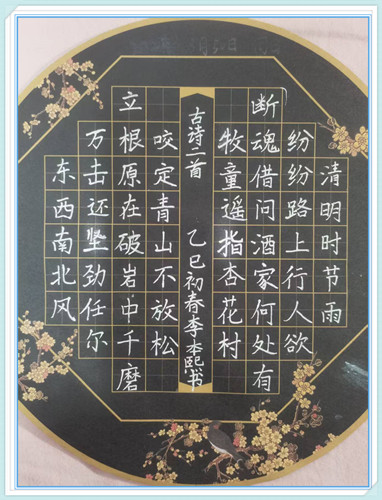 清明时节雨
纷纷路上行人欲
断魂借问酒家何处有
牧童遥指杏花村
古诗二首 乙巳初春李本熙书
咬定青山不放松
立根原在破岩中千磨
万击还坚劲任尔
东西南北风